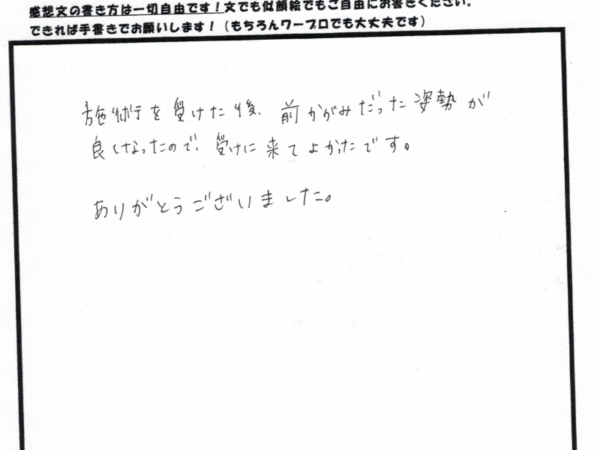 感想文の書き方は一切自由です！文でも似顔絵でもご自由にお書きください。
できれば手書きでお願いします！（もちろんワープロでも大丈夫です）
施術を受けた後、前かがみだった姿勢が
良くなったので、受けに来てよかたです。
ありがとうございました。